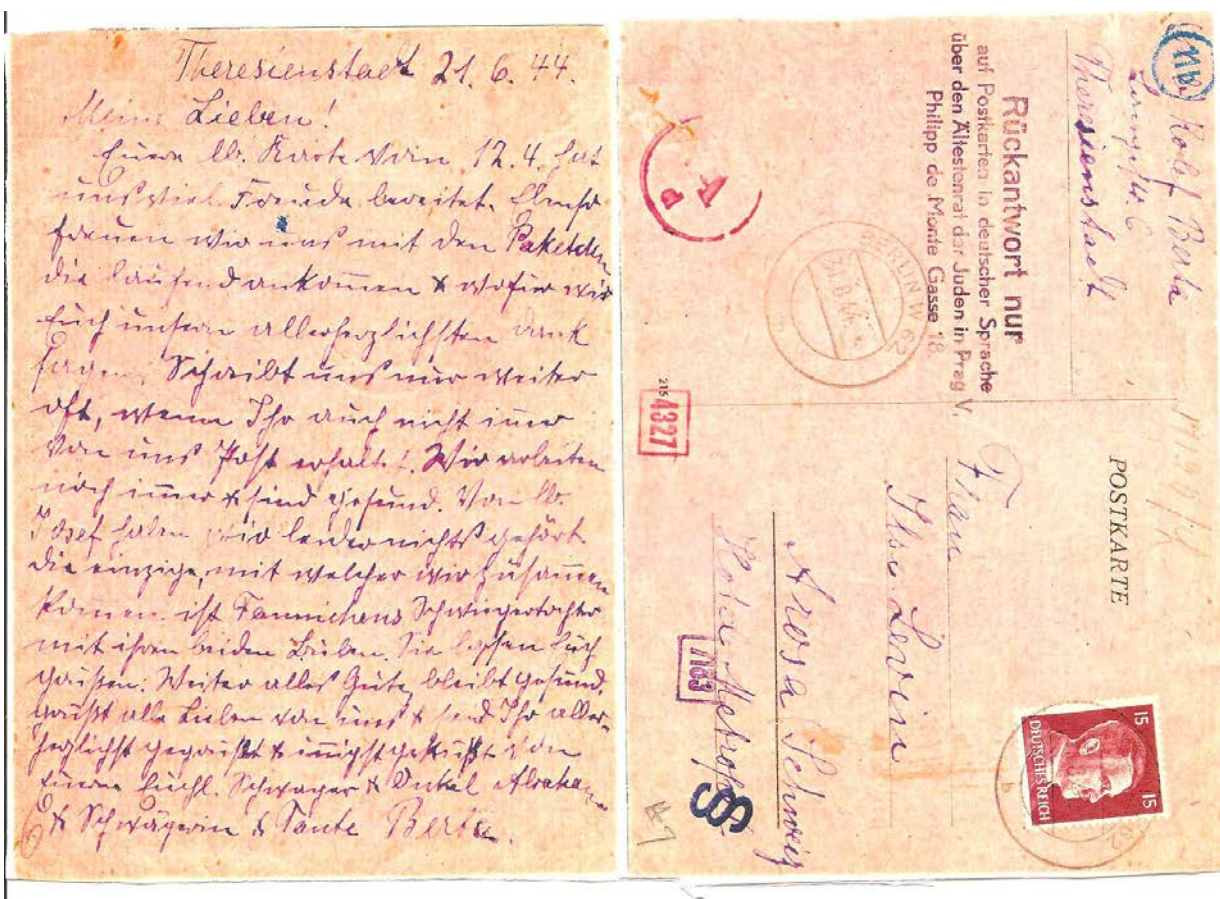 Theresienstadt 21. 6. 44.
Meine Lieben!
Euere lb. Karte vom 12. 4. hat
uns viel Freude bereitet. Ebenso
freuen wir uns mit den Paketchen
die laufend ankommen & wofür wir
Euch unsern allerherzlichsten Dank
sagen. Schreibt uns nur weiter
oft, wenn Ihr auch nicht imer
von uns Post erhaltet. Wir arbeiten
noch imer & sind gesund. Von lb.
Josef haben wir leider nichts gehört
die einzige, mit welcher wir zusamen
komen ist Fannichens Schwiegertochter
mit ihren beiden Buben. Sie lassen Euch
grüßen. Weiter alles Gute, bleibt gesund.
grüßt alle Lieben von uns & seid Ihr aller-
herzlichst gegrüßt & innigst geküßt von
Euern Schwager & Onkel Abraham
& Schwägerin & Tante Berta.
Berta
6
Theresienstadt
Rückantwort nur
auf Postkarten in deutscher Sprache
über den Ältestenrat der Juden in Prag V,
Philipp de Monte Gasse 18.
BERLIN W 62
A
a
215
4327
POSTKARTE
Frau
Ilse Levin
Arosa Schweiz
Hotel Metropol
7163
15
15
DEUTSCHES REICH
b